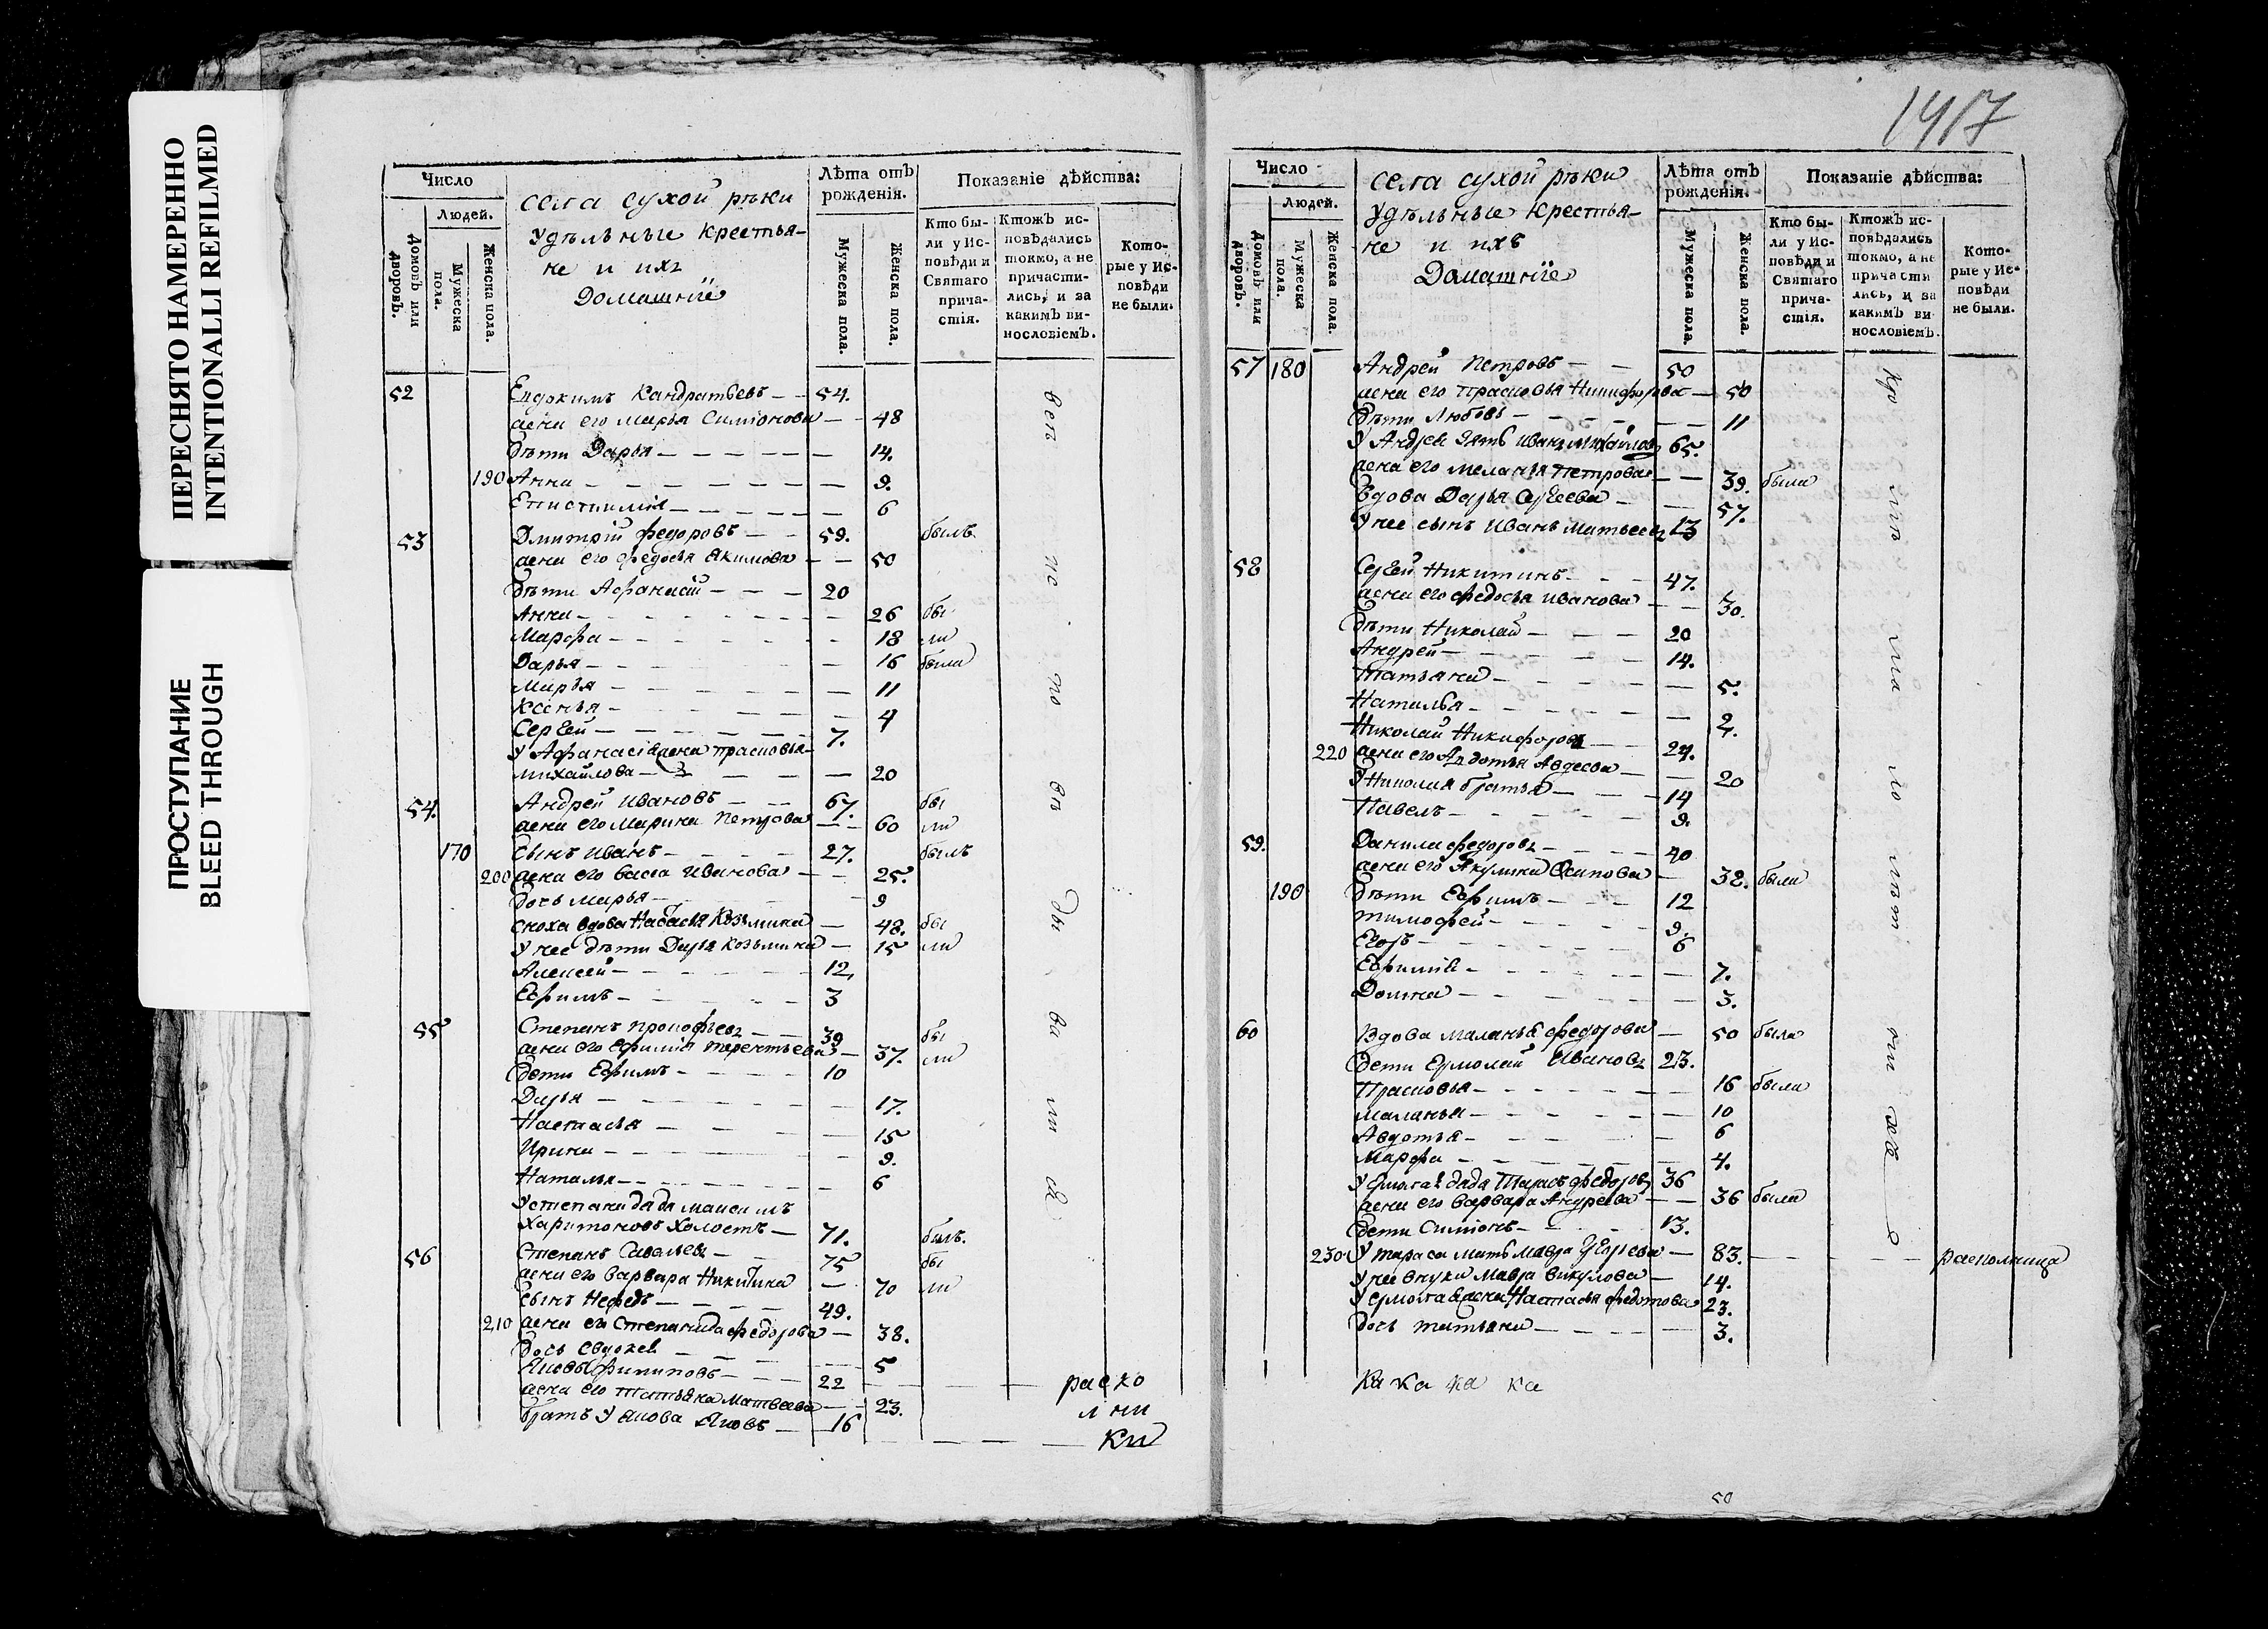 ПЕРЕСНЯТО НАМЕРЕННО
INTENTIONALLI REFILMED
ПРОСТУПАНИЕ
BLEED THROUGH
Число
Людей.
Домовъ или дворовъ.
Мужеска пола.
Женска пола.
села сухой рѣки
удѣльные крестья-
не и ихъ
Домашніе
Лѣта отъ рожденія.
Мужеска пола.
Женска пола.
Показаніе дѣйства:
Кто бы-
ли у Ис-
повѣди и
Святаго
прича-
стія.
Ктожъ ис-
повѣдались
токмо, а не
причасти-
лись, и за
какимъ ви-
нословіемъ.
Кото-
рые у Ис-
повѣди
не были.
52 Евдокимъ Кандратьевъ 54.
жена его марья Симіонова 48
дѣти Дарья 14.
190 Анна 9.
Епистимія 6
53 Дмитрій федоровъ 59. былъ
жена его федосья Якимова 50
дѣти Афанасій 20
Анна 26 бы
Марфа 18 ли
Дарья 16 была
Марья 11
Ксенья 4
Сергей 7.
у Афанасія жена прасковья
михайлова 20
54. Андрей Ивановъ 67. бы
жена его Марина Петрова 60 ли
170 сынъ Иванъ 27. былъ
200 жена его васса Иванова 25.
дочь марья 9
сноха вдова Настасья Козьмина 48. бы
у нее дѣти Дарья Козьмина 15 ли
Алексей 12,
Ефимъ 3
55 Степанъ прокофьевъ 39 бы
жена его ефимія терентьева 37. ли
дети Ефимъ 10
Дарья 17.
Настасья 15
Ирина 9.
Наталья 6
у степана дядя максимъ
Харитоновъ холостъ 71. былъ.
56 Степанъ Савельевъ 75 бы
жена его варвара Никитина 70 ли
сынъ Нефедъ 49.
210 жена ег Степанида федорова 38.
дочь евдокея 5
Яковъ филиповъ 22 раско
жена его татьяна матвеева 23. льни
братъ у якова Яковъ 16 ки
1417
Число
Людей.
Домовъ или дворовъ.
Мужеска пола.
Женска пола.
села сухой рѣки
удѣльные крестья-
не и ихъ
Домашніе
Лѣта отъ рожденія.
Мужеска пола.
Женска пола.
Показаніе дѣйства:
Кто бы-
ли у Ис-
повѣди и
Святаго
прича-
стія.
Ктожъ ис-
повѣдались
токмо, а не
причасти
лись, и за
какимъ ви
нословіемъ.
Кото-
рые у Ис-
повѣди
не были.
57 180 Андрей Петровъ 50
жена его прасковья Никифорова 50
дѣти Любовь 11
у Андрея зять иванъ михайловъ 65.
жена его меланья петрова 39. была
вдова Дарья Сергеева 57.
у нее сынъ Иванъ матвеевъ 13
58 Сергей Никитинъ 47.
жена его федосья иванова 30.
дѣти Николай 20
Андрей 14.
Татьяна 5.
Наталья 2.
Николай Никифоровъ 24.
220 жена его Авдотья Авдеева 20
у Николая братья 14
Павелъ 9.
59. Данила федоровъ 40
жена его Акулина Осипова 38. была
190 дѣти Ефимъ 12
тимофей 9.
Егоръ 6
Ефимія 7.
Домна 3.
60 Вдова маланья федорова 50 была
дети Ермолай Ивановъ 23.
Прасковья 16 была
маланья 10
Авдотья 6
Марфа 4.
у Ермолая дядя Тарасъ федоровъ 36
жена его варвара Андреева 36 была
дети Симіонъ 13.
230 у тараса мать мавра Егорьева 83. расколница
у нее внука мавра викулова 14.
у ермолая жена Настасья федотова 23.
дочь татьяна 3.
Ка ка ка ка
50